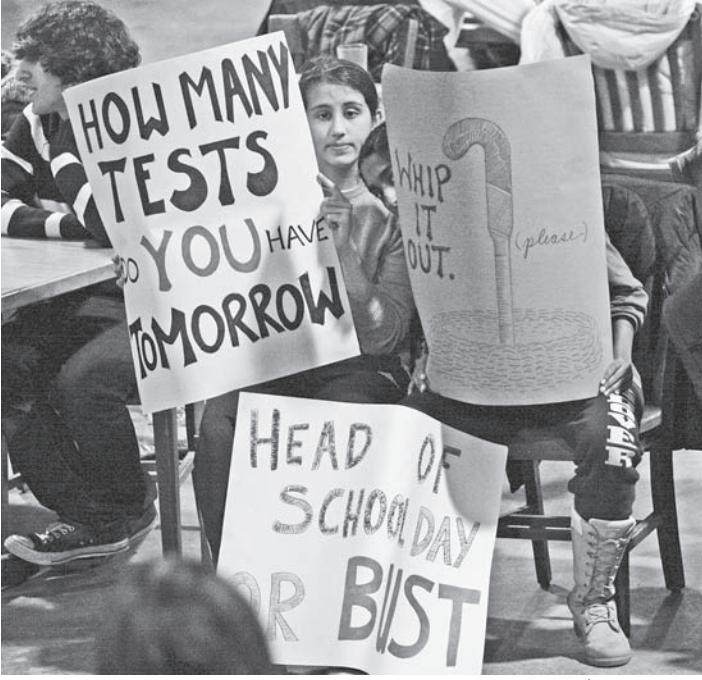 HOW MANY
TESTS
DO YOU HAVE
TOMORROW
WHIP
IT
OUT.
(please)
HEAD OF
SCHOOL DAY
OR BUST